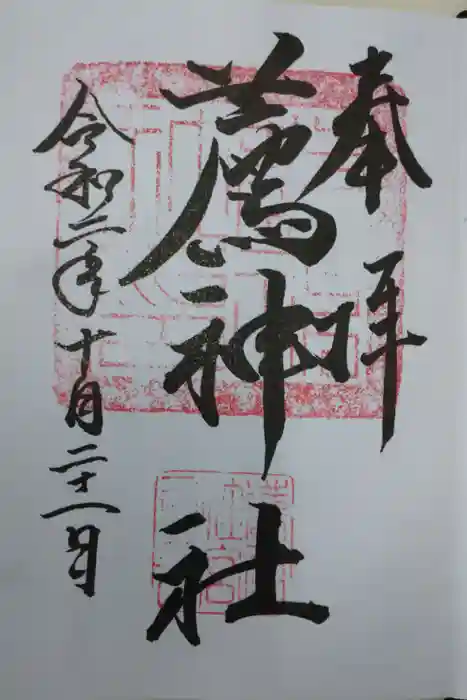 奉拝
薦神社
令和二年十月二十一日